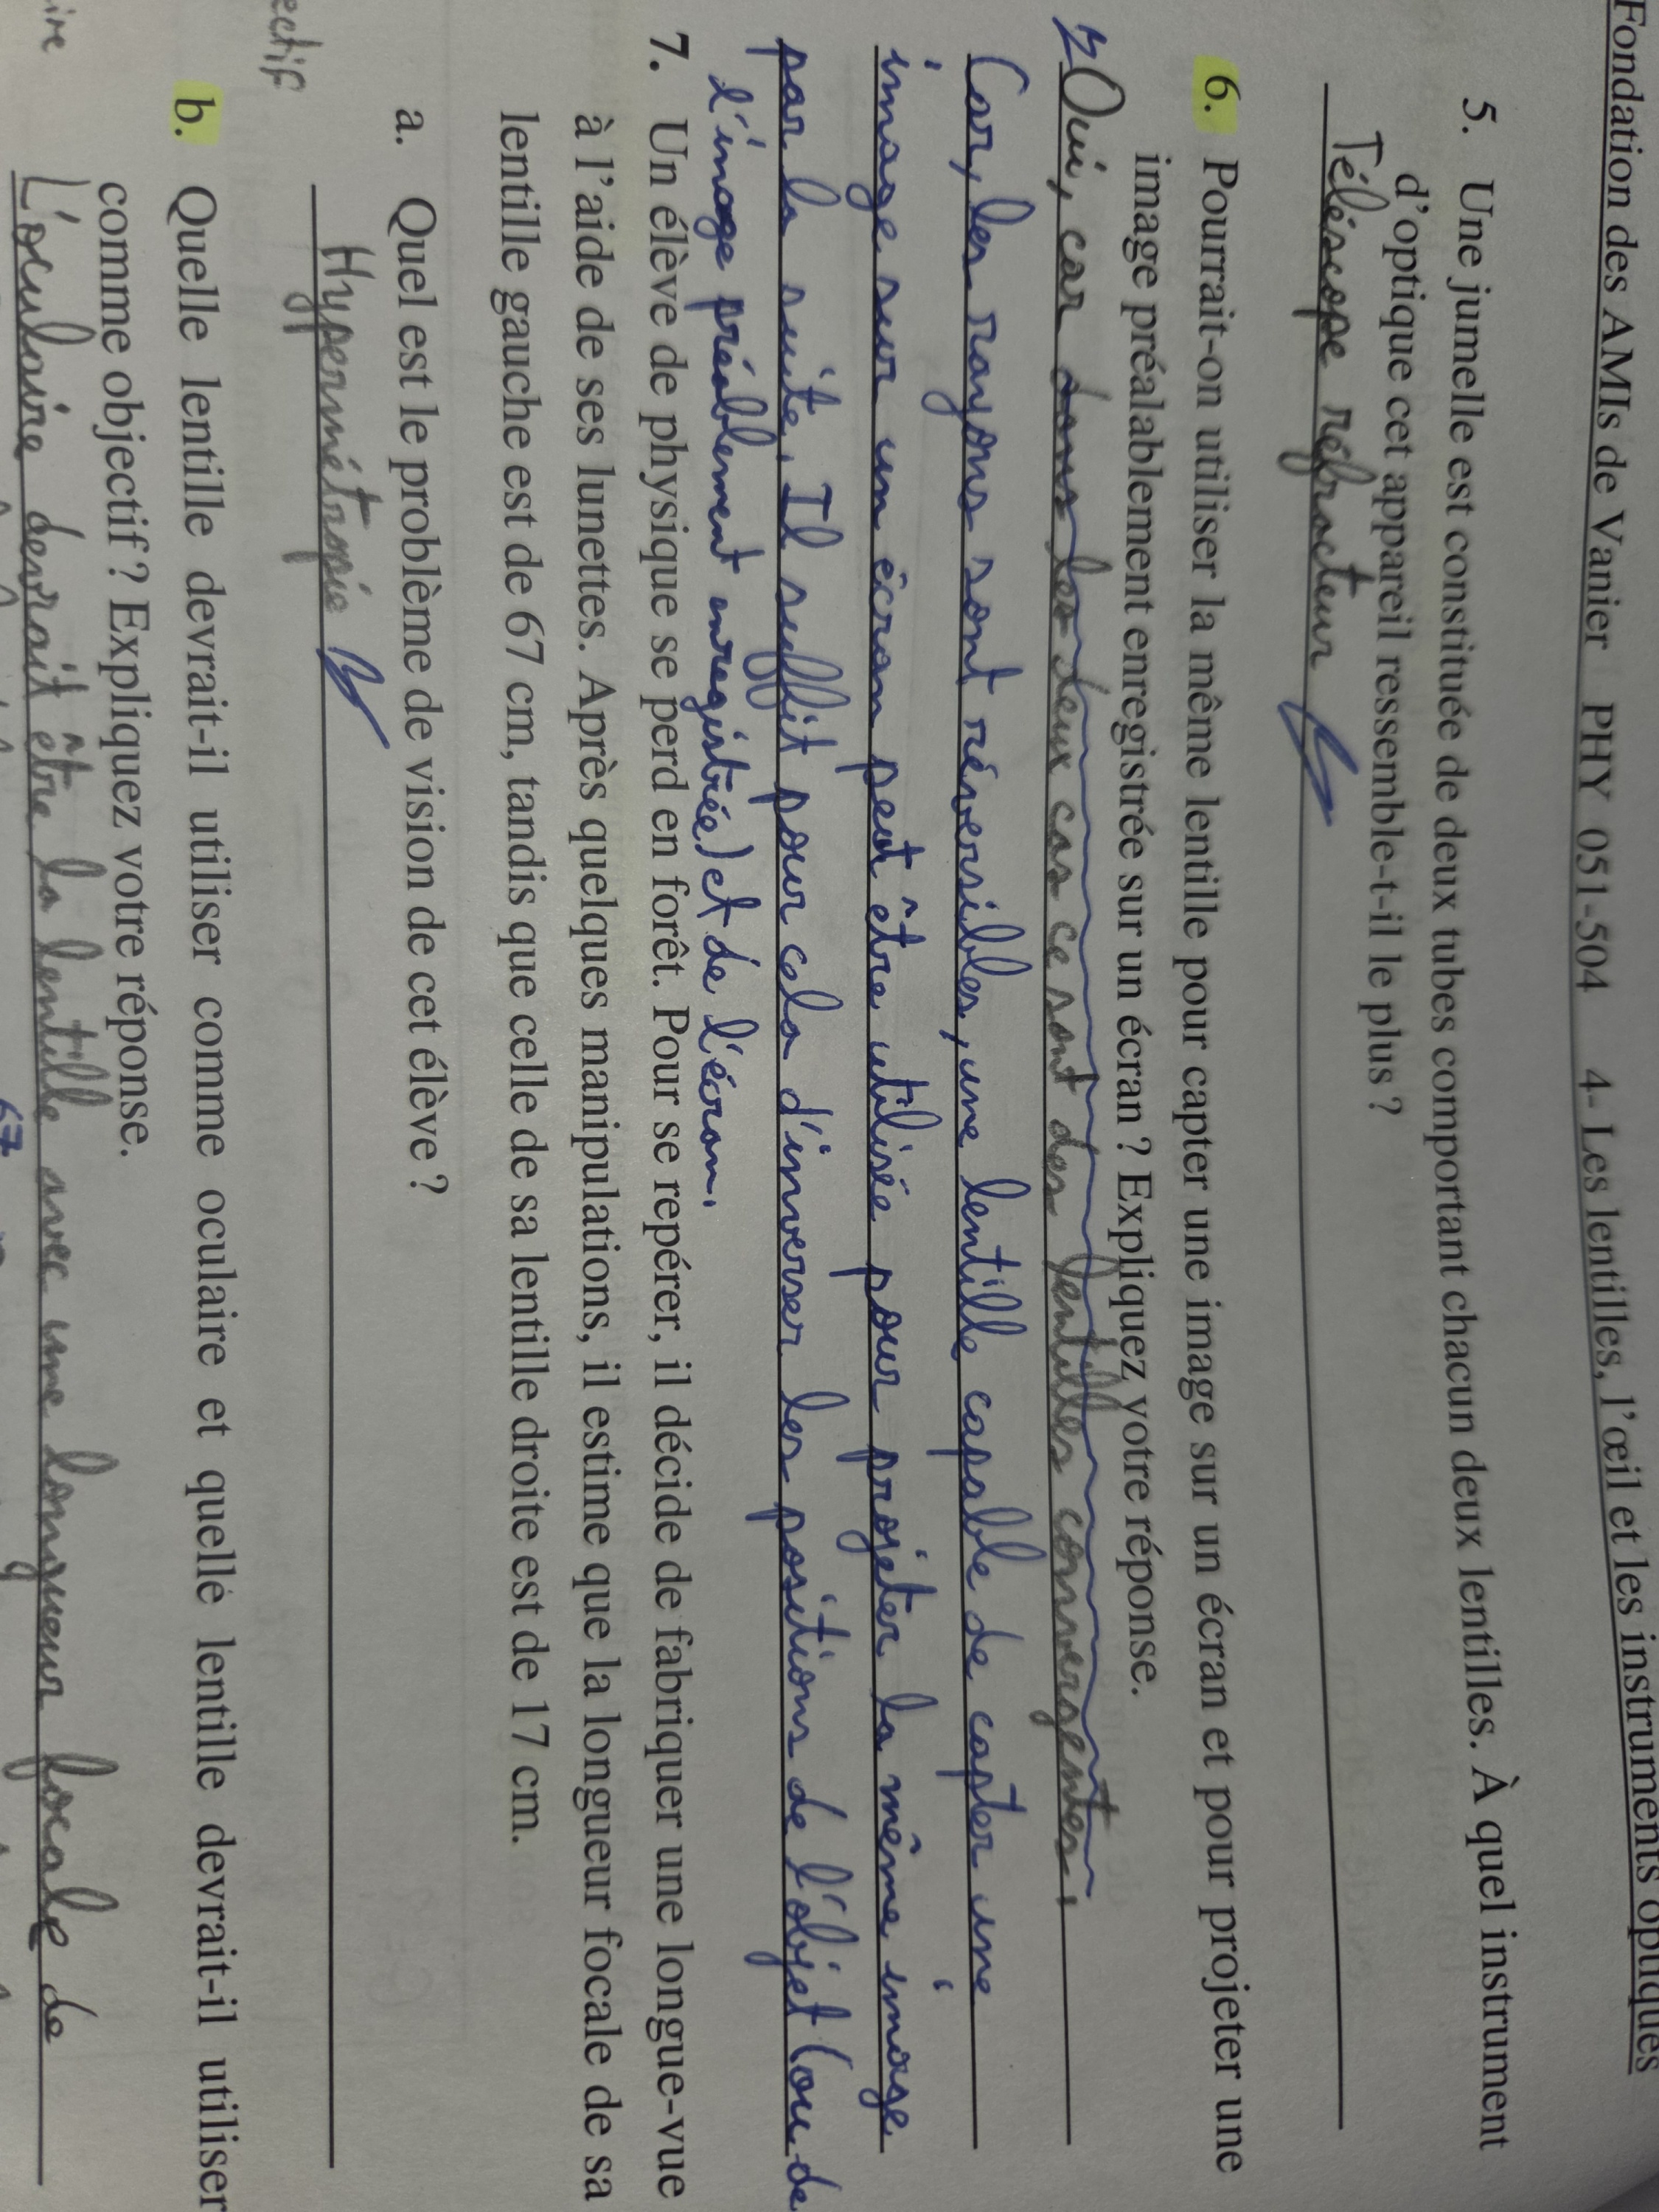 Fondation des AMIs de Vanier PHY 051-504 4- Les lentilles, l'œil et les instruments optiques
5. Une jumelle est constituée de deux tubes comportant chacun deux lentilles. À quel instrument
d'optique cet appareil ressemble-t-il le plus ?
Téléscope réfracteur
6. Pourrait-on utiliser la même lentille pour capter une image sur un écran et pour projeter une
image préalablement enregistrée sur un écran ? Expliquez votre réponse.
Oui, car dans les deux cas ce sont des lentilles convergentes.
Car, les rayons sont réversibles, une lentille capable de capter une
image sur un écran peut être utilisée pour projeter la même image
par la suite. Il suffit pour cela d'inverser les positions de l'objet (ou de
l'image préablement enregistrée) et de l'écran.
7. Un élève de physique se perd en forêt. Pour se repérer, il décide de fabriquer une longue-vue
à l'aide de ses lunettes. Après quelques manipulations, il estime que la longueur focale de sa
lentille gauche est de 67 cm, tandis que celle de sa lentille droite est de 17 cm.
a. Quel est le problème de vision de cet élève ?
Hypermétropie
ectif
b. Quelle lentille devrait-il utiliser comme oculaire et quelle lentille devrait-il utiliser
comme objectif ? Expliquez votre réponse.
ire
L'oculaire devrait être la lentille avec une longueur focale de
67